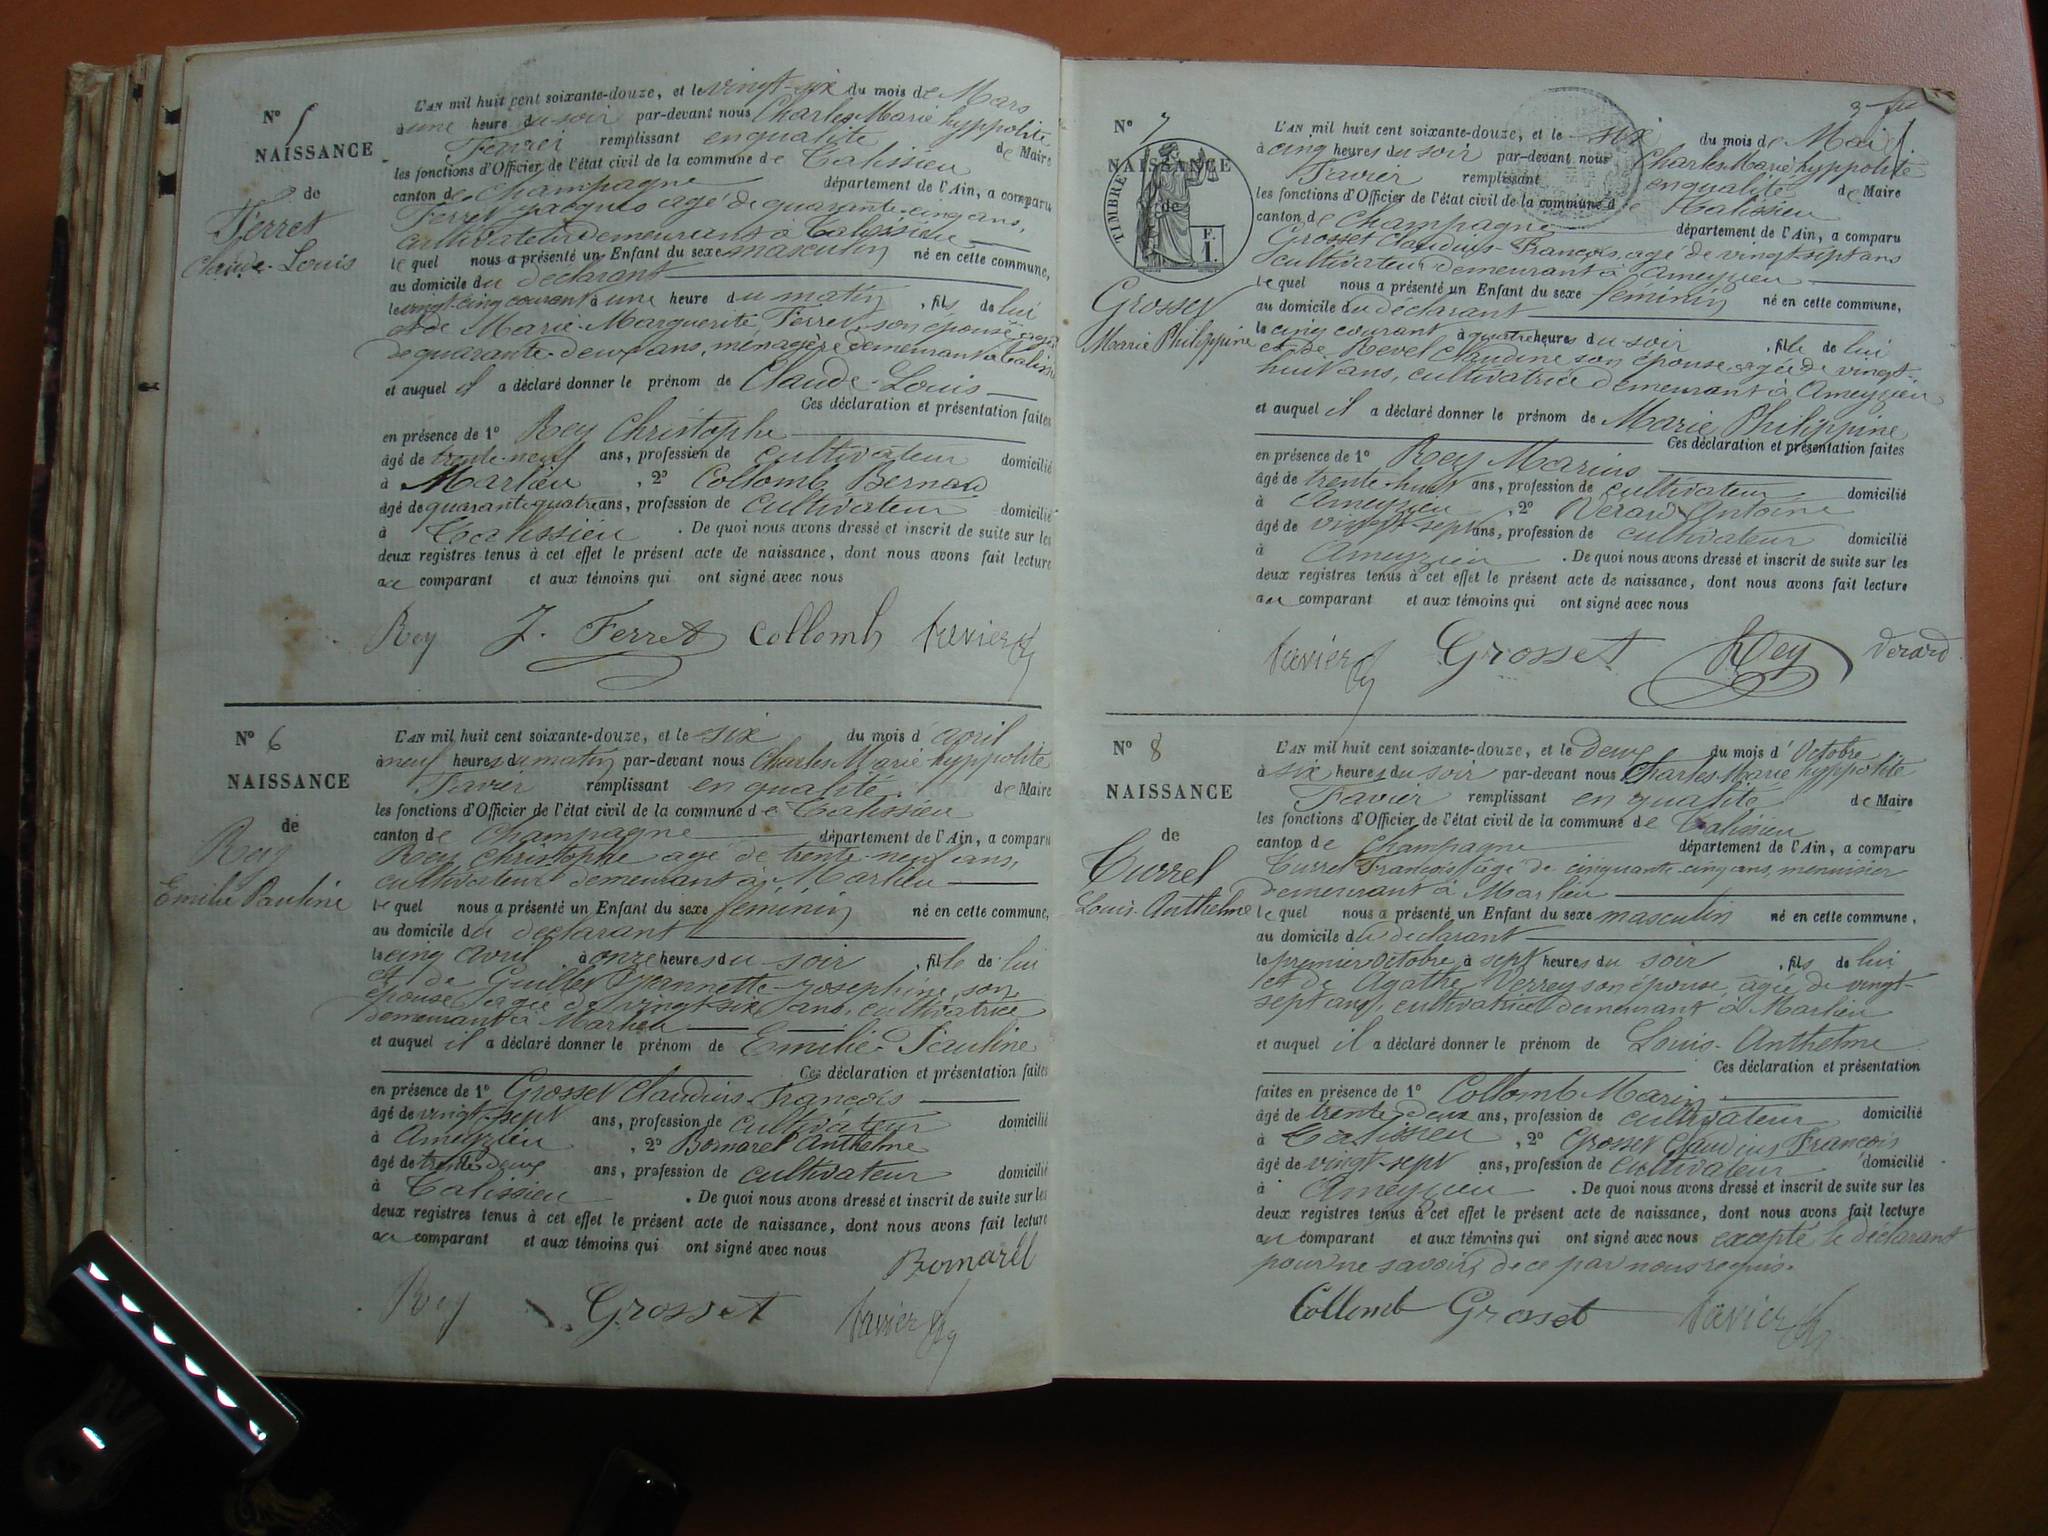 N° 5
NAISSANCE
de
Ferret
Claude-Louis
L'AN mil huit cent soixante-douze, et le vingt-six du mois de Mars
à une heure du soir par-devant nous Charles Marie hyppolite
Favier remplissant en qualité de Maire
les fonctions d'Officier de l'état civil de la commune de Talissieu
canton de Champagne département de l'Ain, a comparu
Ferret Jacques agé de quarante-cinq ans,
cultivateur demeurant à Talissieu
le quel nous a présenté un Enfant du sexe masculin né en cette commune,
au domicile du déclarant
le vingt-cinq courant à une heure du matin, fils de lui
et de Marie-Marguerite Ferret, son épouse agée
de quarante-deux ans, ménagère demeurant à Talissieu
et auquel il a déclaré donner le prénom de Claude-Louis
Ces déclaration et présentation faites
en présence de 1° Rey Christophe
âgé de trente-neuf ans, profession de cultivateur domicilié
à Marlieu, 2° Collomb Bernard
âgé de quarante-quatre ans, profession de cultivateur domicilié
à Talissieu. De quoi nous avons dressé et inscrit de suite sur les
deux registres tenus à cet effet le présent acte de naissance, dont nous avons fait lecture
au comparant et aux témoins qui ont signé avec nous
Rey J. Ferret Collomb Favier
N° 6
NAISSANCE
de
Rey
Emilie Pauline
L'AN mil huit cent soixante-douze, et le six du mois d'avril
à neuf heures du matin par-devant nous Charles Marie hyppolite
Favier remplissant en qualité de Maire
les fonctions d'Officier de l'état civil de la commune de Talissieu
canton de Champagne département de l'Ain, a comparu
Rey Christophe agé de trente-neuf ans,
cultivateur demeurant à Marlieu
le quel nous a présenté un Enfant du sexe féminin né en cette commune,
au domicile du déclarant
le cinq Avril à onze heures du soir, fille de lui
et de Guillet Jeannette-Josephine, son
épouse agée de vingt-six ans, cultivatrice
demeurant à Marlieu
et auquel il a déclaré donner le prénom de Emilie-Pauline
Ces déclaration et présentation faites
en présence de 1° Grosset Claudius-François
âgé de vingt-sept ans, profession de cultivateur domicilié
à Ameyzieu, 2° Bomarel Anthelme
âgé de trente deux ans, profession de cultivateur domicilié
à Talissieu. De quoi nous avons dressé et inscrit de suite sur les
deux registres tenus à cet effet le présent acte de naissance, dont nous avons fait lecture
au comparant et aux témoins qui ont signé avec nous
Bomarel
Rey Grosset Favier
3
N° 7
NAISSANCE
de
TIMBRE
F.
1.
Grosset
Marie Philippine
L'AN mil huit cent soixante-douze, et le six du mois de Mai
à cinq heures du soir par-devant nous Charles Marie hyppolite
Favier remplissant en qualité de Maire
les fonctions d'Officier de l'état civil de la commune de Talissieu
canton de Champagne département de l'Ain, a comparu
Grosset Claudius-François, agé de vingt-sept ans
cultivateur demeurant à Ameyzieu
le quel nous a présenté un Enfant du sexe féminin né en cette commune,
au domicile du déclarant
le cinq courant à quatre heures du soir, fille de lui
et de Revel Claudine son épouse agée de vingt-
huit ans, cultivatrice demeurant à Ameyzieu
et auquel il a déclaré donner le prénom de Marie Philippine
Ces déclaration et présentation faites
en présence de 1° Rey Marius
âgé de trente-huit ans, profession de cultivateur domicilié
à Ameyzieu, 2° Vérard Antoine
âgé de vingt-sept ans, profession de cultivateur domicilié
à Ameyzieu. De quoi nous avons dressé et inscrit de suite sur les
deux registres tenus à cet effet le présent acte de naissance, dont nous avons fait lecture
au comparant et aux témoins qui ont signé avec nous
Favier Grosset Rey Verard
N° 8
NAISSANCE
de
Currel
Louis-Anthelme
L'AN mil huit cent soixante-douze, et le deux du mois d'Octobre
à six heures du soir par-devant nous Charles-Marie hyppolite
Favier remplissant en qualité de Maire
les fonctions d'Officier de l'état civil de la commune de Talissieu
canton de Champagne département de l'Ain, a comparu
Currel François âgé de cinquante-cinq ans, menuisier
demeurant à Marlieu
le quel nous a présenté un Enfant du sexe masculin né en cette commune,
au domicile du déclarant
le premier Octobre, à sept heures du soir, fils de lui
et de Agathe Verrey son épouse, agée de vingt-
sept ans, cultivatrice demeurant à Marlieu
et auquel il a déclaré donner le prénom de Louis-Anthelme
Ces déclaration et présentation
faites en présence de 1° Collomb Marin
âgé de trente-deux ans, profession de cultivateur domicilié
à Talissieu, 2° Grosset Claudius François
âgé de vingt-sept ans, profession de cultivateur domicilié
à Ameyzieu. De quoi nous avons dressé et inscrit de suite sur les
deux registres tenus à cet effet le présent acte de naissance, dont nous avons fait lecture
au comparant et aux témoins qui ont signé avec nous excepté le déclarant
pour ne savoir, de ce par nous requis.
Collomb Grosset Favier